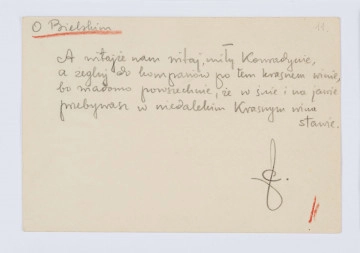 O Bielskim
11.
A witajże nam witaj, miły Konradycie,
a żegluj do kompanów po tem krasnem winie,
bo wiadomo powszechnie, że w śnie i na jawie
przebywasz w niedalekim Krasnym wina
stawie.